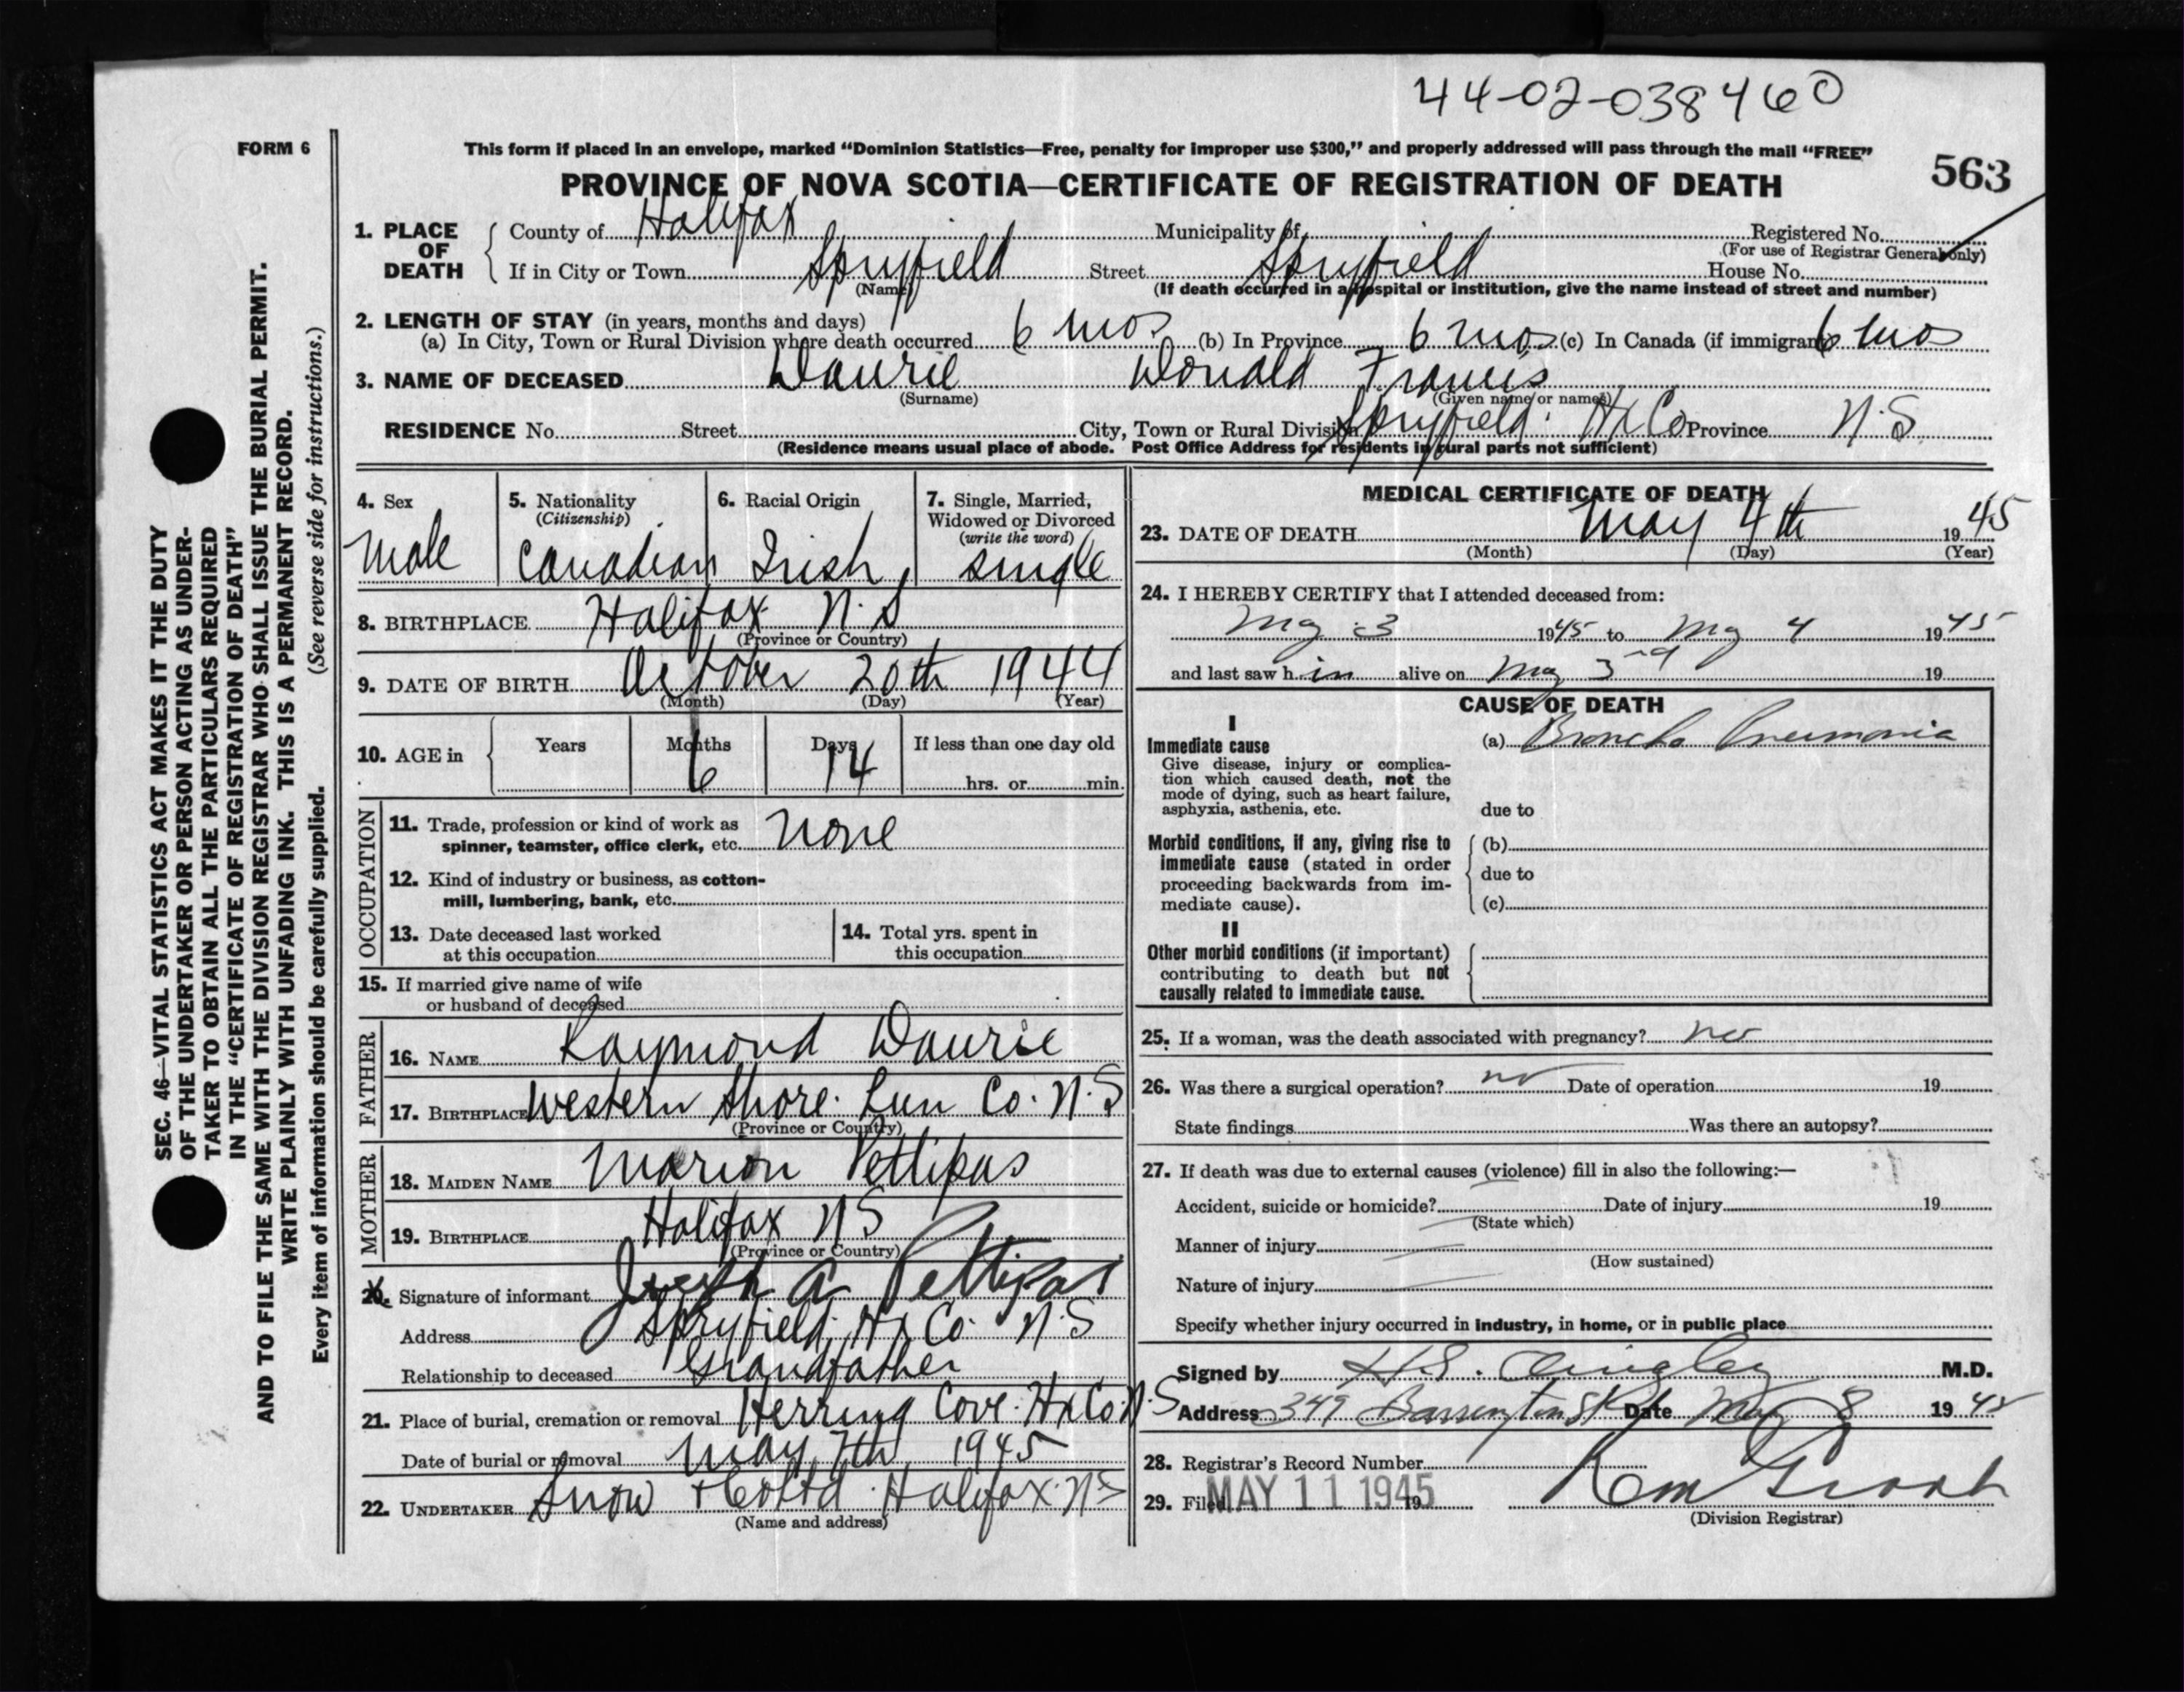 44-02-038460
FORM 6
This form if placed in an envelope, marked “Dominion Statistics—Free, penalty for improper use $300,” and properly addressed will pass through the mail “FREE”
563
PROVINCE OF NOVA SCOTIA—CERTIFICATE OF REGISTRATION OF DEATH
1. PLACE OF DEATH
County of Halifax Municipality of Registered No.
(For use of Registrar General only)
If in City or Town Spryfield Street Spryfield House No.
(Name) (If death occurred in a hospital or institution, give the name instead of street and number)
2. LENGTH OF STAY (in years, months and days)
(a) In City, Town or Rural Division where death occurred 6 mos (b) In Province 6 mos (c) In Canada (if immigrant) 6 mos
3. NAME OF DECEASED Daurie Donald Francis
(Surname) (Given name or names)
RESIDENCE No. Street City, Town or Rural Division Spryfield. Hx Co Province N.S.
(Residence means usual place of abode. Post Office Address for residents in rural parts not sufficient)
4. Sex Male
5. Nationality (Citizenship) Canadian
6. Racial Origin Irish
7. Single, Married, Widowed or Divorced (write the word) single
8. BIRTHPLACE Halifax N.S
(Province or Country)
9. DATE OF BIRTH October 20th 1944
(Month) (Day) (Year)
10. AGE in Years Months Days If less than one day old
6 14 hrs. or min.
OCCUPATION
11. Trade, profession or kind of work as spinner, teamster, office clerk, etc. none
12. Kind of industry or business, as cotton-mill, lumbering, bank, etc.
13. Date deceased last worked at this occupation
14. Total yrs. spent in this occupation
15. If married give name of wife or husband of deceased
FATHER
16. NAME Raymond Daurie
17. BIRTHPLACE Western Shore. Lun Co. N.S
(Province or Country)
MOTHER
18. MAIDEN NAME Marion Pettipas
19. BIRTHPLACE Halifax NS
(Province or Country)
20. Signature of informant Joseph A Pettipas
Address Spryfield, Hx Co. N.S
Relationship to deceased Grandfather
21. Place of burial, cremation or removal Herring Cove. Hx Co N.S
Date of burial or removal May 7th, 1945
22. UNDERTAKER Snow & Co Ltd. Halifax. NS
(Name and address)
MEDICAL CERTIFICATE OF DEATH
23. DATE OF DEATH May 4th 1945
(Month) (Day) (Year)
24. I HEREBY CERTIFY that I attended deceased from:
May 3 1945 to May 4 1945
and last saw him alive on May 3rd 19
CAUSE OF DEATH
I
Immediate cause
Give disease, injury or complication which caused death, not the mode of dying, such as heart failure, asphyxia, asthenia, etc.
(a) Broncho Pneumonia
due to
Morbid conditions, if any, giving rise to immediate cause (stated in order proceeding backwards from immediate cause).
(b)
due to
(c)
II
Other morbid conditions (if important) contributing to death but not causally related to immediate cause.
25. If a woman, was the death associated with pregnancy? no
26. Was there a surgical operation? no Date of operation 19
State findings Was there an autopsy?
27. If death was due to external causes (violence) fill in also the following:—
Accident, suicide or homicide? Date of injury 19
(State which)
Manner of injury
(How sustained)
Nature of injury
Specify whether injury occurred in industry, in home, or in public place
Signed by H.S. M.D.
Address 349 Barrington St Date May 8 1945
28. Registrar's Record Number
29. Filed MAY 11 1945 19
(Division Registrar)
SEC. 46—VITAL STATISTICS ACT MAKES IT THE DUTY
OF THE UNDERTAKER OR PERSON ACTING AS UNDER-
TAKER TO OBTAIN ALL THE PARTICULARS REQUIRED
IN THE “CERTIFICATE OF REGISTRATION OF DEATH”
AND TO FILE THE SAME WITH THE DIVISION REGISTRAR WHO SHALL ISSUE THE BURIAL PERMIT.
WRITE PLAINLY WITH UNFADING INK. THIS IS A PERMANENT RECORD.
Every item of information should be carefully supplied. (See reverse side for instructions.)